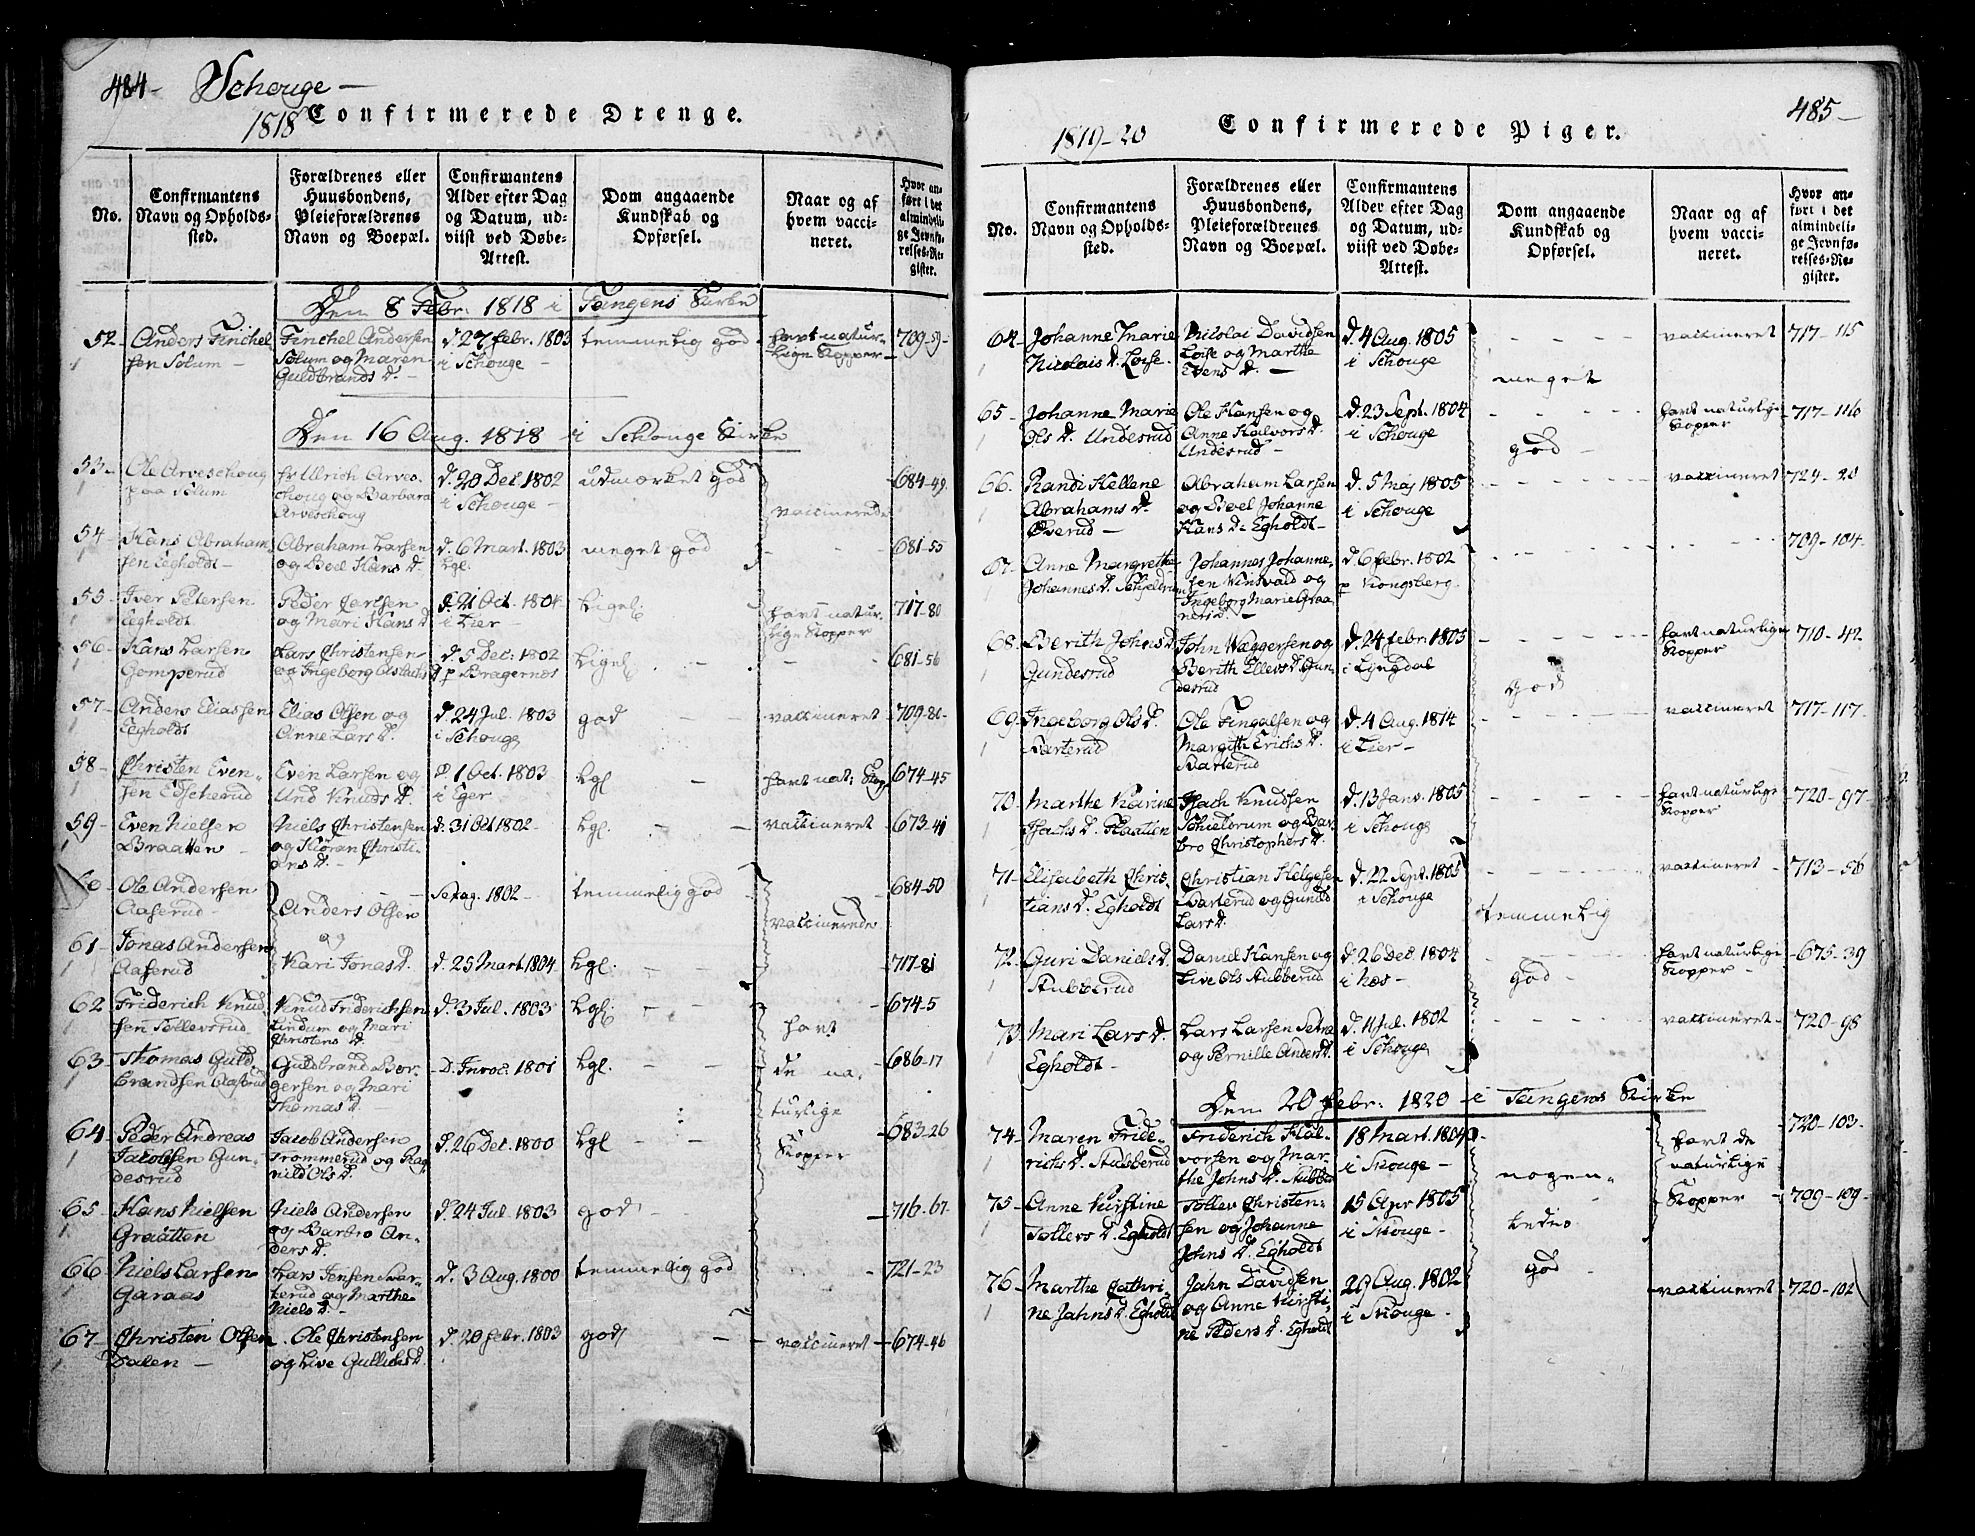 484- Schouge -
1818 Confirmerede Drenge.
No.
Confirmantens
Navn og Opholds-
sted.
Forældrenes eller
Huusbondens,
Pleieforældrenes
Navn og Boepæl.
Confirmantens
Alder efter Dag
og Datum, ud-
viist ved Døbe-
Attest.
Dom angaaende
Kundskab og
Opførsel.
Naar og af
hvem vacci-
neret.
Hvor an-
ført i det
almindeli-
ge Jevnfø-
relses-Re-
gister.
Den 8 Febr. 1818 i Tangens Kirke
52- Anders Finchel
sen Solum -
Finchel Andersen
Solum og Maren
Guldbrands D. -
d. 27 febr. 1803
i Schouge -
temmelig god
havt natur-
lige Kopper -
709-9
Den 16 Aug. 1818 - i Schouge Kirke
53- Ole Arveschoug
paa Solum
Hr Ulrich Arves-
choug og Barbara
Arveschoug
d. 20 Dec 1802
i Schouge -
udmærket god
vaccinerede
684-49
54- Hans Abraham
sen Egholdt -
Abraham Larsen
og Boel Hans D.
d. 6 Mart. 1803
Lgl.
meget god
681-55
55- Iver Petersen
Egholdt
Peder Jertsen
og Mari Hans D
d. 21 Oct. 1804
i Lier -
Ligel.
havt natur-
lige Kopper
717-80
56- Hans Larsen
Gomperud
Lars Christensen
og Ingeborg Olstads D
d. 5 Dec: 1802
p Bragernes
Ligel.
681-56
57- Anders Eliassen
Egholdt
Elias Olsen og
Anne Lars D.
d. 24 Jul. 1803
i Schouge
god
vaccineret
709-80
58- Christen Even-
sen Edscherud
Even Larsen og
Und Knuds D.
d. 1 Oct. 1803
i Eger -
Lgl
havt nat: Kop.
674-45
59- Even Nielsen
Braatten -
Niels Christensen
og Kloran Christi-
ans D. -
d. 31 Oct 1802 -
Lgl.
vaccineret
673-41
60- Ole Andersen
Aaserud -
Anders Olsen
og
Kari Jonas D.
1802 -
temmelig god
vaccinerede
684-50
61- Jonas Andersen
Aaserud
d. 25 Mart. 1804
Lgl.
717-81
62 Friderich Knud
sen Tollersrud
Knud Friderichsen
Lindum og Mari
Christens D.
d. 3 Jul. 1803
Lgl.
havt
674-5
63- Thomas Guld
brandsen Aaserud
Guldbrand Bør-
gersen og Mari
Thomas D. -
D. Invoc. 1801
Lgl.
de na-
turlige
686-17
64- Peder Andreas
Jacobsen Gun-
desrud
Jacob Andersen
Trommerud og Rag
nild Ols D.
d. 26 Dec. 1800
Lgl
Kopper
683-26
65- Hans Nielsen
Graatten
Niels Andersen
og Barbro An-
ders D.
d. 24 Jul. 1803
god
716-67
66- Niels Larsen
Garaas
Lars Jensen Svar-
terud og Marthe
Niels D. -
d. 3 Aug. 1800
temmelig god
721-23
67- Christen Olsen
Dalen -
Ole Christensen
og Live Gullichs D.
d. 20 febr. 1803
god
vaccineret
674-46
485-
1819-20 Confirmerede Piger.
No.
Confirmantens
Navn og Opholds-
sted.
Forældrenes eller
Huusbondens,
Pleieforældrenes
Navn og Boepæl.
Confirmantens
Alder efter Dag
og Datum, ud-
viist ved Døbe-
Attest.
Dom angaaende
Kundskab og
Opførsel.
Naar og af
hvem vacci-
neret.
Hvor an-
ført i det
almindeli-
ge Jevnfø-
relses-Re-
gister.
64- Johanne Marie
Nicolais D. Lose.
Nicolai Davidsen
Lose og Marthe
Evens D. -
d. 4 Aug. 1805
i Schouge
meget
vaccineret
717-115
65- Johanne Marie
Ols D. Undesrud
Ole Hansen og
Anne Halvors D.
Undesrud -
d. 23 Sept. 1804
i Schouge
god -
havt naturlige
Kopper
717-116
66. Randi Hellene
Abrahams D.
Øverud -
Abraham Larsen
og Boel Johanne
Hans D. Egholdt -
d. 5 Maj 1805
i Schouge
vaccineret
724-20
67. Anne Margrethe
Johannes D.
Johannes Johanne-
sen Vinsvald og
Ingeborg Marie Graa
ners D. -
d. 6 febr. 1802
p Kongsberg
709-104
68. Berith Johns D.
Gundesrud
John Wæggersen og
Berith Ellevs D. Gun
desrud
d. 24 febr: 1803
i Lyngdal
god
havt naturlige
Kopper
710-42
69. Ingeborg Ols D.
Svarterud
Ole Fingalsen og
Margith Erichs D.
Svarterud
d. 4 Aug. 1814
i Lier -
vaccineret
717-117
70- Marthe Karine
Isachs D. Plassen
Isach Knudsen
Schielorum og Bar-
bro Christophers D.
d. 13 Janv. 1805
i Schouge
havt naturlige
Kopper
720-97
71- Elisabeth Chris-
tians D. Egholdt
Christian Helgesen
Svarterud og Gunild
Lars D.
d. 22 Sept. 1805
i Schouge
temmelig
vaccineret
713-56
72- Guri Daniels D.
Stubberud
Daniel Hansen og
Live Ols Stubberud
d. 26 Dec. 1804
i Næs -
god
havt naturlige
Kopper -
675-39
73 Mari Lars D.
Egholdt -
Lars Larsen Setra
og Pernille Anders D.
d. 11 Jul. 1802
i Schouge
vaccineret
720-98
Den 20 febr: 1820 - i Tangens Kirke
74- Maren Fride-
richs D. Stubberud
Friderich Hal-
vorsen og Mar-
the Johns D. Stubbe
18 Mart. 1804
i Skouge -
nogen-
havt de
naturlige
720-103
75- Anne Kirstine
Tollevs D. Egholdt
Tollev Christen-
sen og Johanne
Johns D. Egholdt
15 Apr 1805
i Skouge -
ledes
Kopper
709-109
76- Marthe Cathri-
ne Jahns D. Egholdt
Jahn Davidsen
og Anne Kirsti-
ne Peders D. Egholdt
29 Aug. 1802
i Skouge -
god
vaccineret
720-102